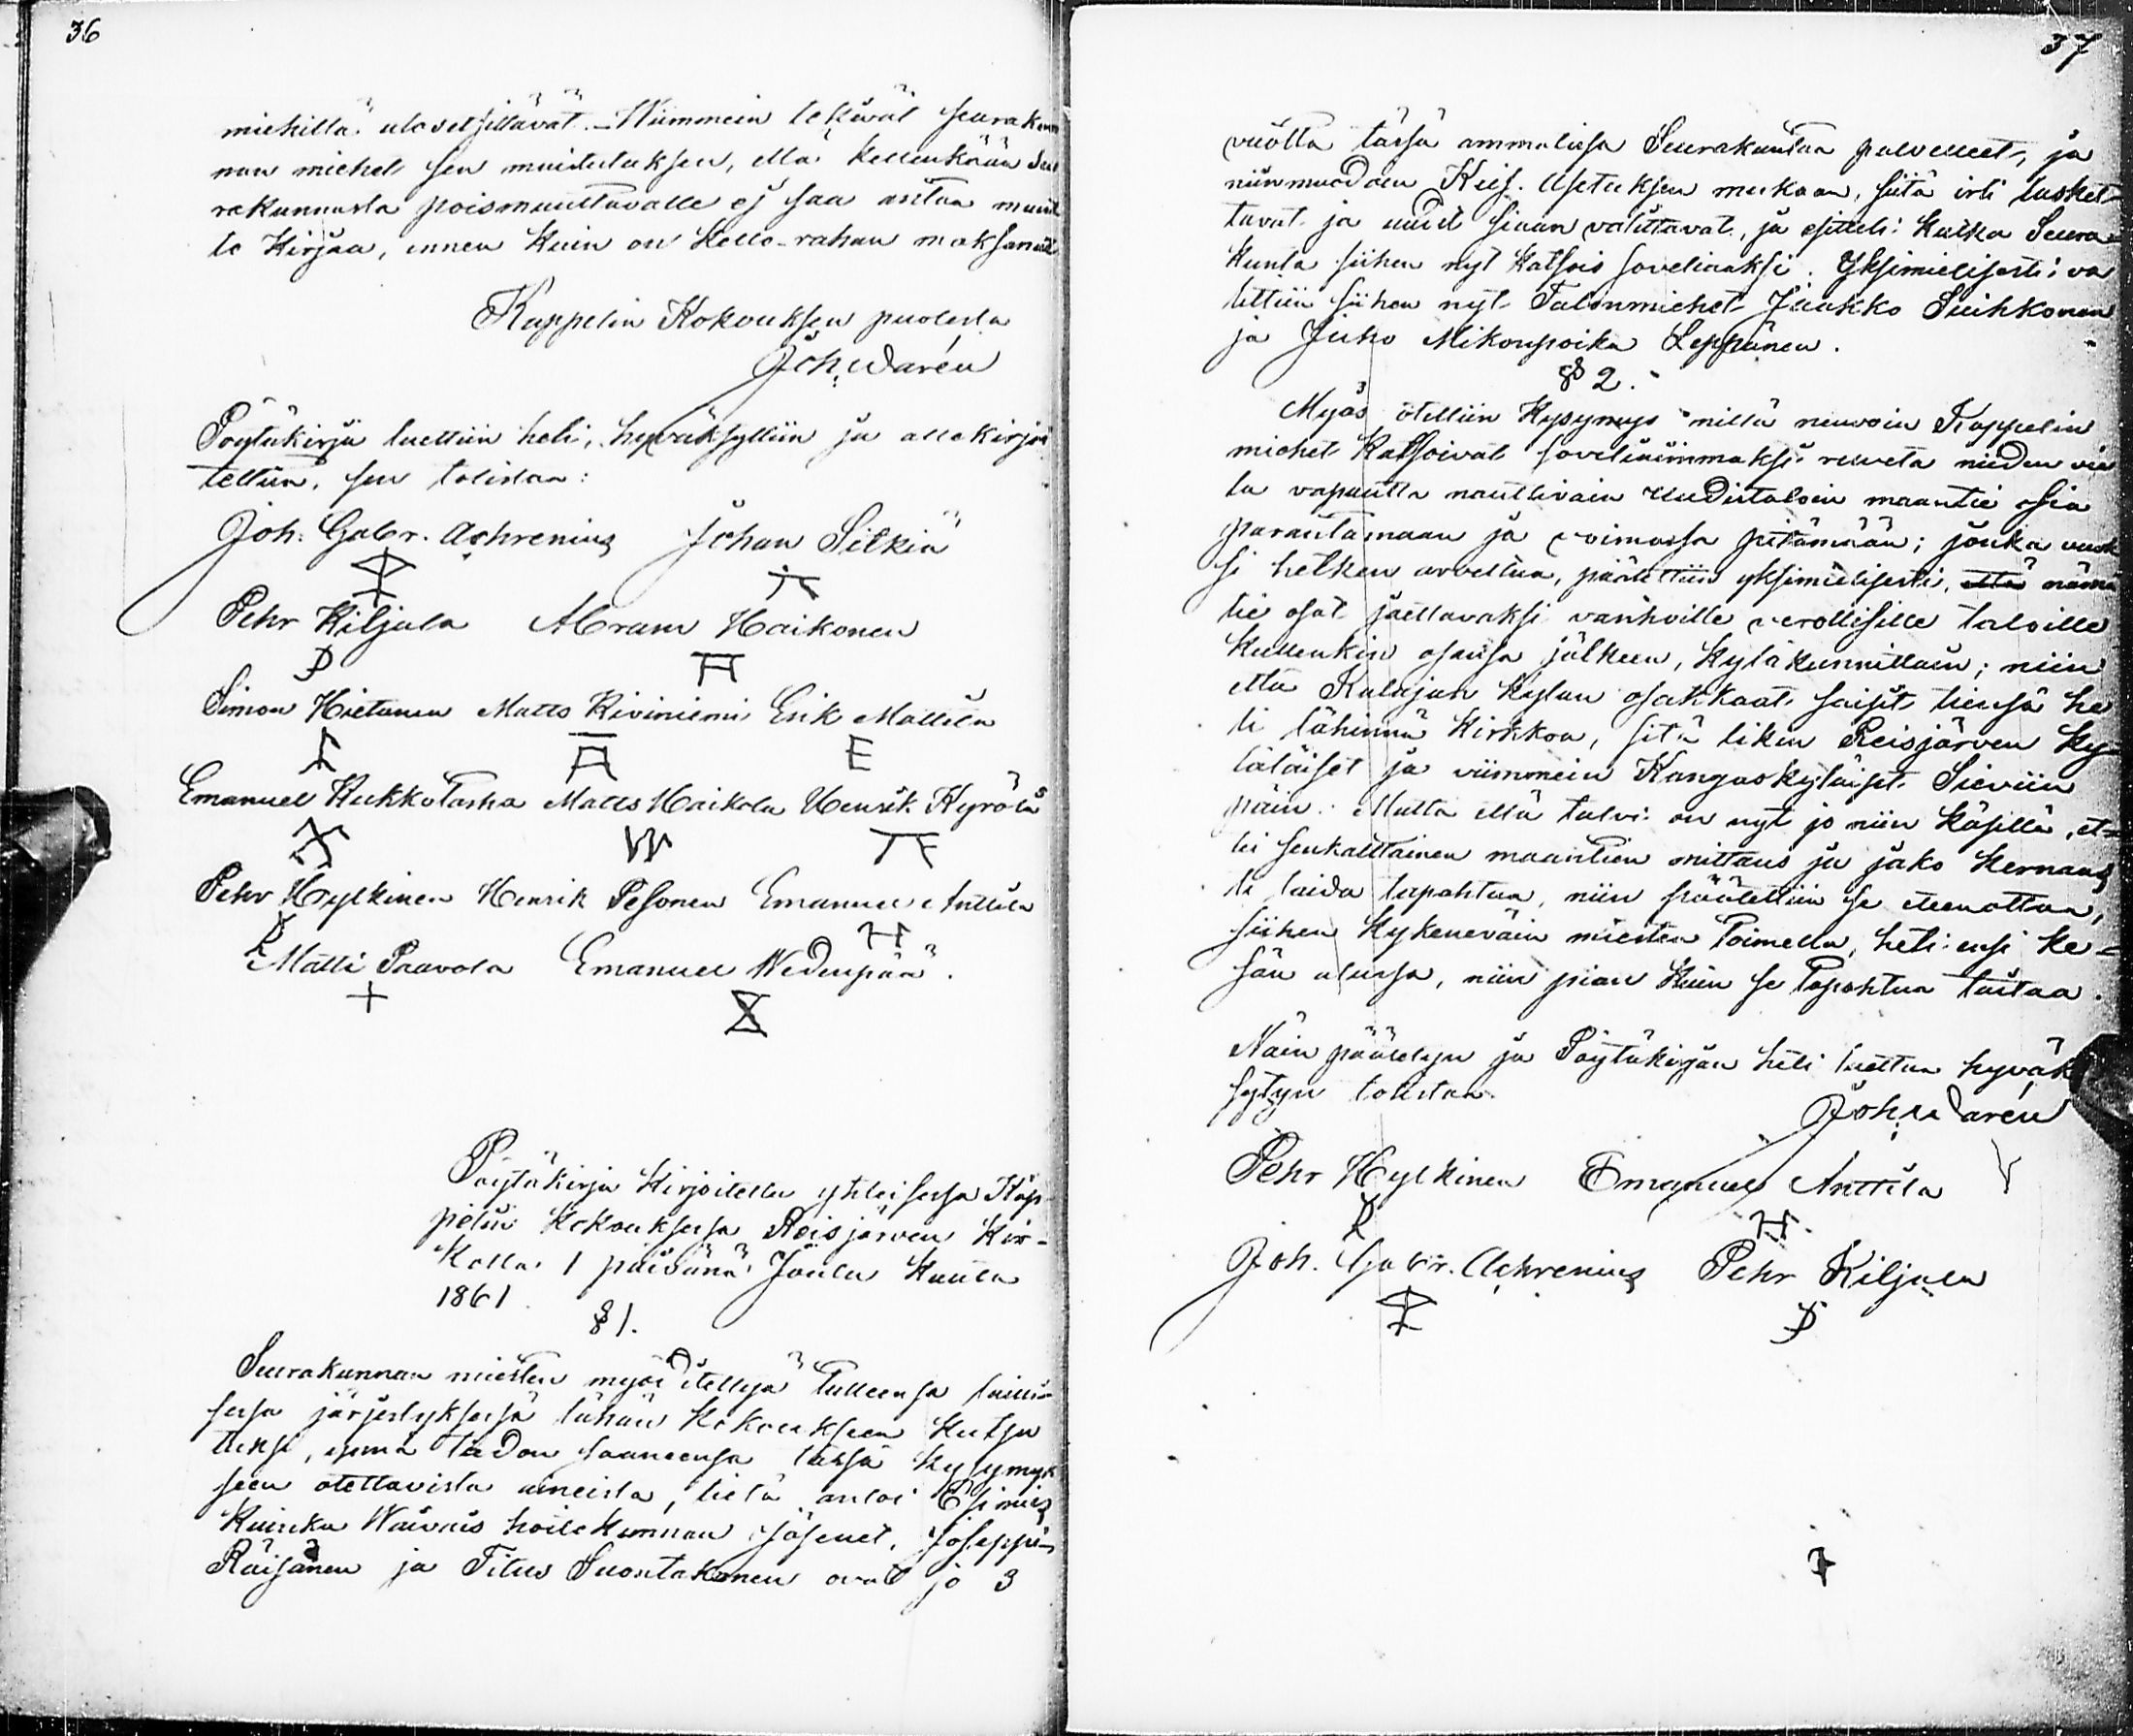 36
miehillä ulosetsittävät. Wiimmein tekivät seurakun
nan miehet sen muistutuksen, että kellenkään Seu
rakunnasta poismuuttavalle ej saa antaa muut
to Kirjaa, ennen kuin on Kello-rahan maksanut
Kappelin Kokouksen puolesta
Joh. Warén
Pöytäkirja luettiin heti, hyväksyttiin ja allekirjoi
tettiin, sen todistaa:
Joh. Gabr. Achrenius Johan Silkiä
Pehr Kiljala Abram Haikonen
Simon Hietanen Matts Kiviniemi Erik Mattila
Emanuel Kukkotasha Matts Haikola Henrik Kyrölä
Pehr Hylkinen Henrik Pesonen Emanuel Anttila
Matti Paavola Emanuel Wedenpää.
Pöytäkirja Kirjoitettu yhteisessä Kap-
pelin Kokouksessa Reisjärven Kir-
kolla 1 päivänä Joulu Kuuta
1861.
§ 1.
Seurakunnan miesten myödstellyä tulleensa lailli-
sessa järjestyksessä tähän Kokoukseen kutsu
tuksi, ynnä tiedon saaneensa tässä kysymyk
seen otettavista aineista, tietä antoi Esimies
Kuinka Waivais hoitokunnan jäsenet, Joseppi
Räisänen ja Titus Suontakanen ovat jo 3
37
vuotta tässä ammatissa Seurakuntaa palvelleet, ja
niinmuodoen Keis. Asetuksen mukaan, siitä irti lasket-
tavat ja uudet siaan valittavat, ja esitteli: Kutka Seura-
kunta siihen nyt katsois soveliaaksi. Yksimielisesti va
littiin siihen nyt Talonmiehet Jaakko Suihkonen
ja Juho Mikonpoika Leppänen.
§ 2.
Myös otettiin Kysymys millä neuvoin Kappelin
miehet Katsoivat soveliaimmaksi ruveta niiden vie
lä vapautta nauttivain Uudistaloin maantie osia
parantamaan ja voimassa pitämään; jonka vuok
si hetken arveltua, päätettiin yksimielisesti, että nämä
tie osat jaettavaksi vanhoille verollisille taloille
kullenkin osansa jälkeen, kyläkunnittain; niin
että Kalajan kylän osakkaat saisit tiensä he
ti lähinnä Kirkkoa, sitä liken Reisjärven ky-
läläiset ja viimmein Kangaskyläiset Sieviin
päin. Mutta että talvi on nyt jo niin käsillä, et-
tei senkalttainen maantien mittaus ja jako kernaas
ti taida tapahtua, niin päätettiin se eteenottaa,
siihen kykeneväin miesten toimella, heti ensi ke-
sän alussa, niin pian kuin se tapahtua taitaa.
Näin päätetyn ja Pöytäkirjan heti luettua hyväk
sytyn todistaa.
Joh. Warén
Pehr Hylkinen Emanuel Anttila
Joh. Gabr. Achrenius Pehr Kiljala